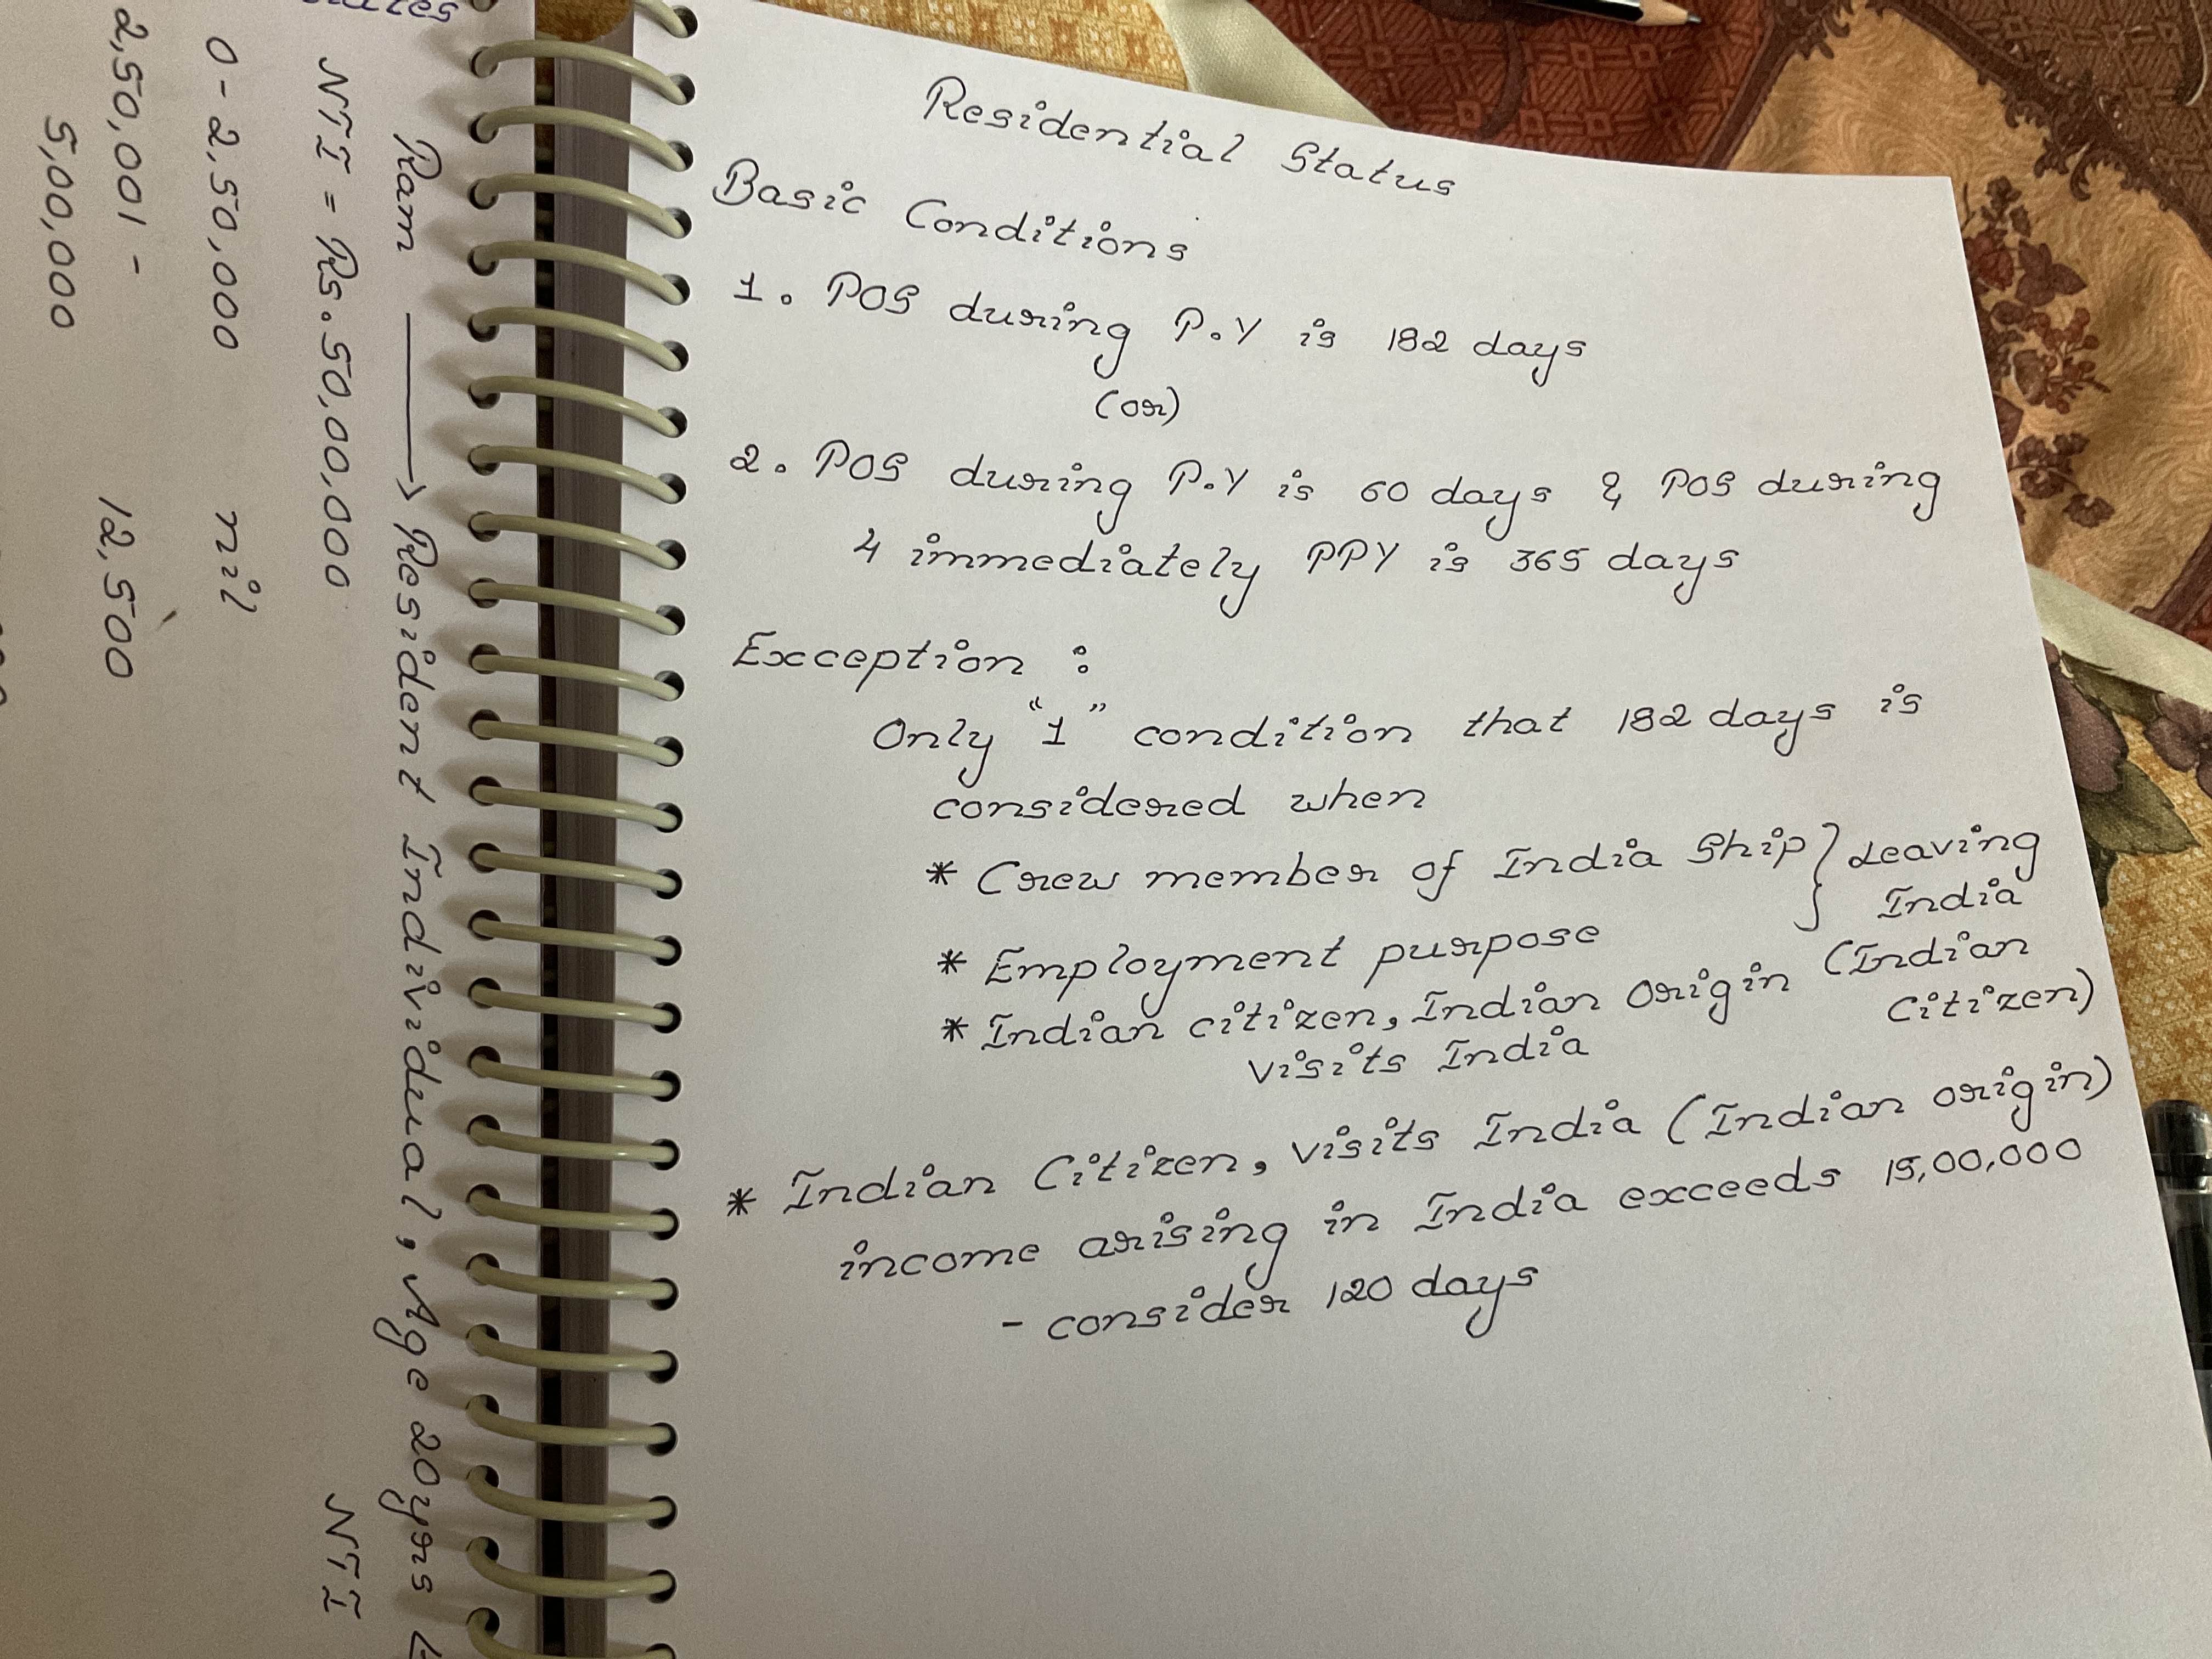 Residential Status
Basic Conditions
1. POS during P.Y is 182 days
(or)
2. POS during P.Y is 60 days & POS during
4 immediately PPY is 365 days
Exception :
Only "1" condition that 182 days is
considered when
* Crew member of India Ship } Leaving India
* Employment purpose
* Indian citizen, Indian Origin (Indian Citizen)
visits India
* Indian Citizen, visits India (Indian origin)
income arising in India exceeds 15,00,000
- consider 120 days
Ram → Resident Individual, Age 20yrs
NTI = Rs. 50,00,000 NTI
0 - 2,50,000 nil
2,50,001 - 12,500
5,00,000